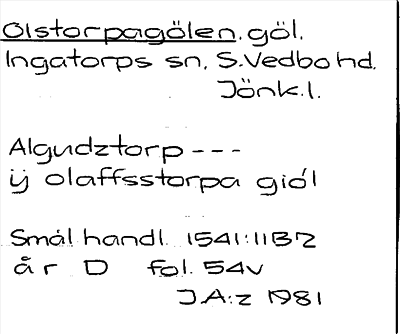 Olstorpagölen. göl.
Ingatorps sn. S. Vedbo hd.
Jönk. l.
Algudztorp ---
ÿ olaffsstorpa giöl
Smål handl. 1541:11B2
år D fol. 54v
J.A:z 1981